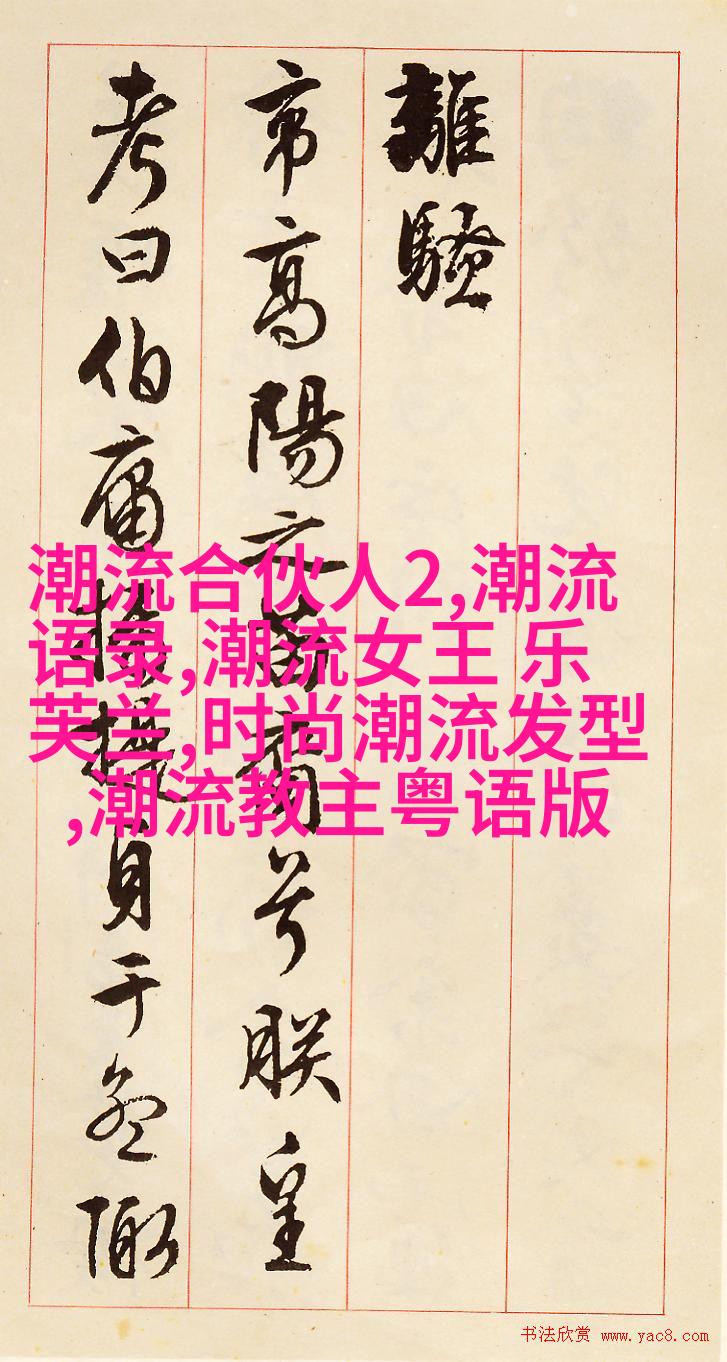 離騷
帝高陽之苗裔兮朕皇
考曰伯庸攝提貞于孟陬
潮流合伙人2,潮流
语录,潮流女王 乐
芙兰,时尚潮流发型
,潮流教主粤语版
书法欣赏 www.yac8.com